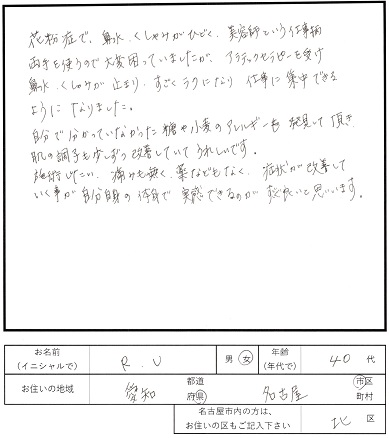 花粉症で、鼻水、くしゃみがひどく、美容師という仕事柄
両手を使うので大変困っていましたが、アラテックセラピーを受け
鼻水、くしゃみが止まり、すごくラクになり 仕事に集中できる
ようになりました。
自分で分かっていなかった糖や小麦のアレルギーも発見して頂き
肌の調子も少しずつ改善していてうれしいです。
施術じたい、痛みも無く、薬などもなく、症状が改善して
いく事が自分自身の体身で実感できるのがすご良いと思います。
お名前
(イニシャルで)
R. U
男・女
年齢
(年代で)
40 代
お住いの地域
愛知
都道
府県
名古屋
市区
町村
名古屋市内の方は、
お住いの区もご記入下さい
北 区